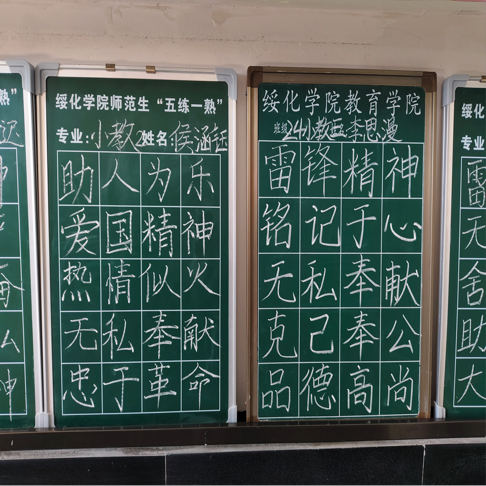 绥化学院师范生“五练一熟”
专业：小教2 姓名：侯涵钰
助人为乐
爱国精神
热情似火
无私奉献
忠于革命
绥化学院教育学院
班级24小教西 李恩漫
雷锋精神
铭记于心
无私奉献
克己奉公
品德高尚
熟”
绥化
专业
雷
无
舍
助
大